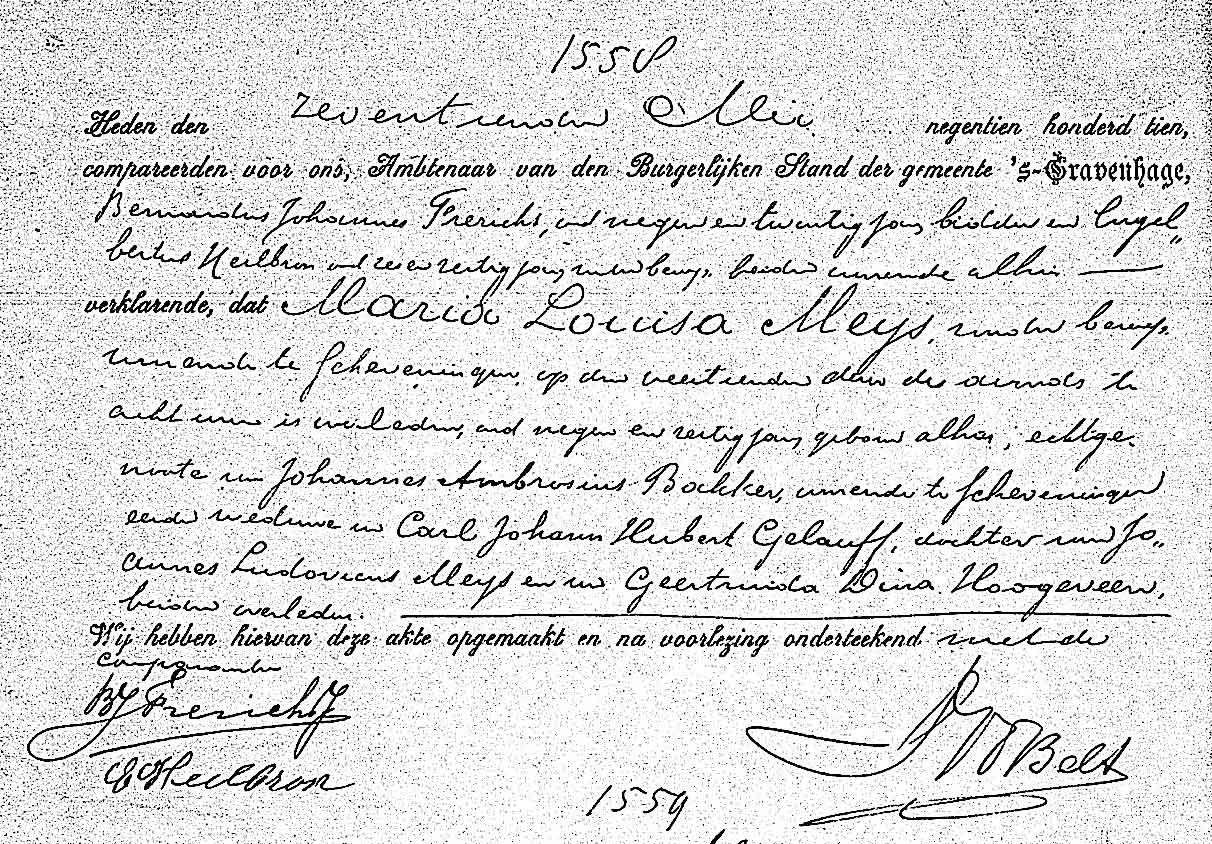 1558
Heden den zeventienden Mei negentien honderd tien,
compareerden voor ons, Ambtenaar van den Burgerlijken Stand der gemeente 's-Gravenhage,
Bernardus Johannes Frerichs, oud negen en twintig jaar, bidder en Engel„
bertus Heilbron oud zes en zestig jaar, zonder beroep, beiden wonende alhier
verklarende, dat Maria Louisa Meys, zonder beroep,
wonende te Scheveningen, op den veertienden dezer des avonds te
acht uren is overleden, oud negen en zestig jaar, geboren alhier, echtge„
noote van Johannes Ambrosius Bakker, wonende te Scheveningen
eerder weduwe van Carl Johann Hubert Gelauff, dochter van Jo„
annes Ludovicus Meys en van Geertruida Dina Hoogeveen,
beiden overleden.
Wij hebben hiervan deze akte opgemaakt en na voorlezing onderteekend met de
comparanten
BJ Frerichs
E Heilbron
Belt
1559